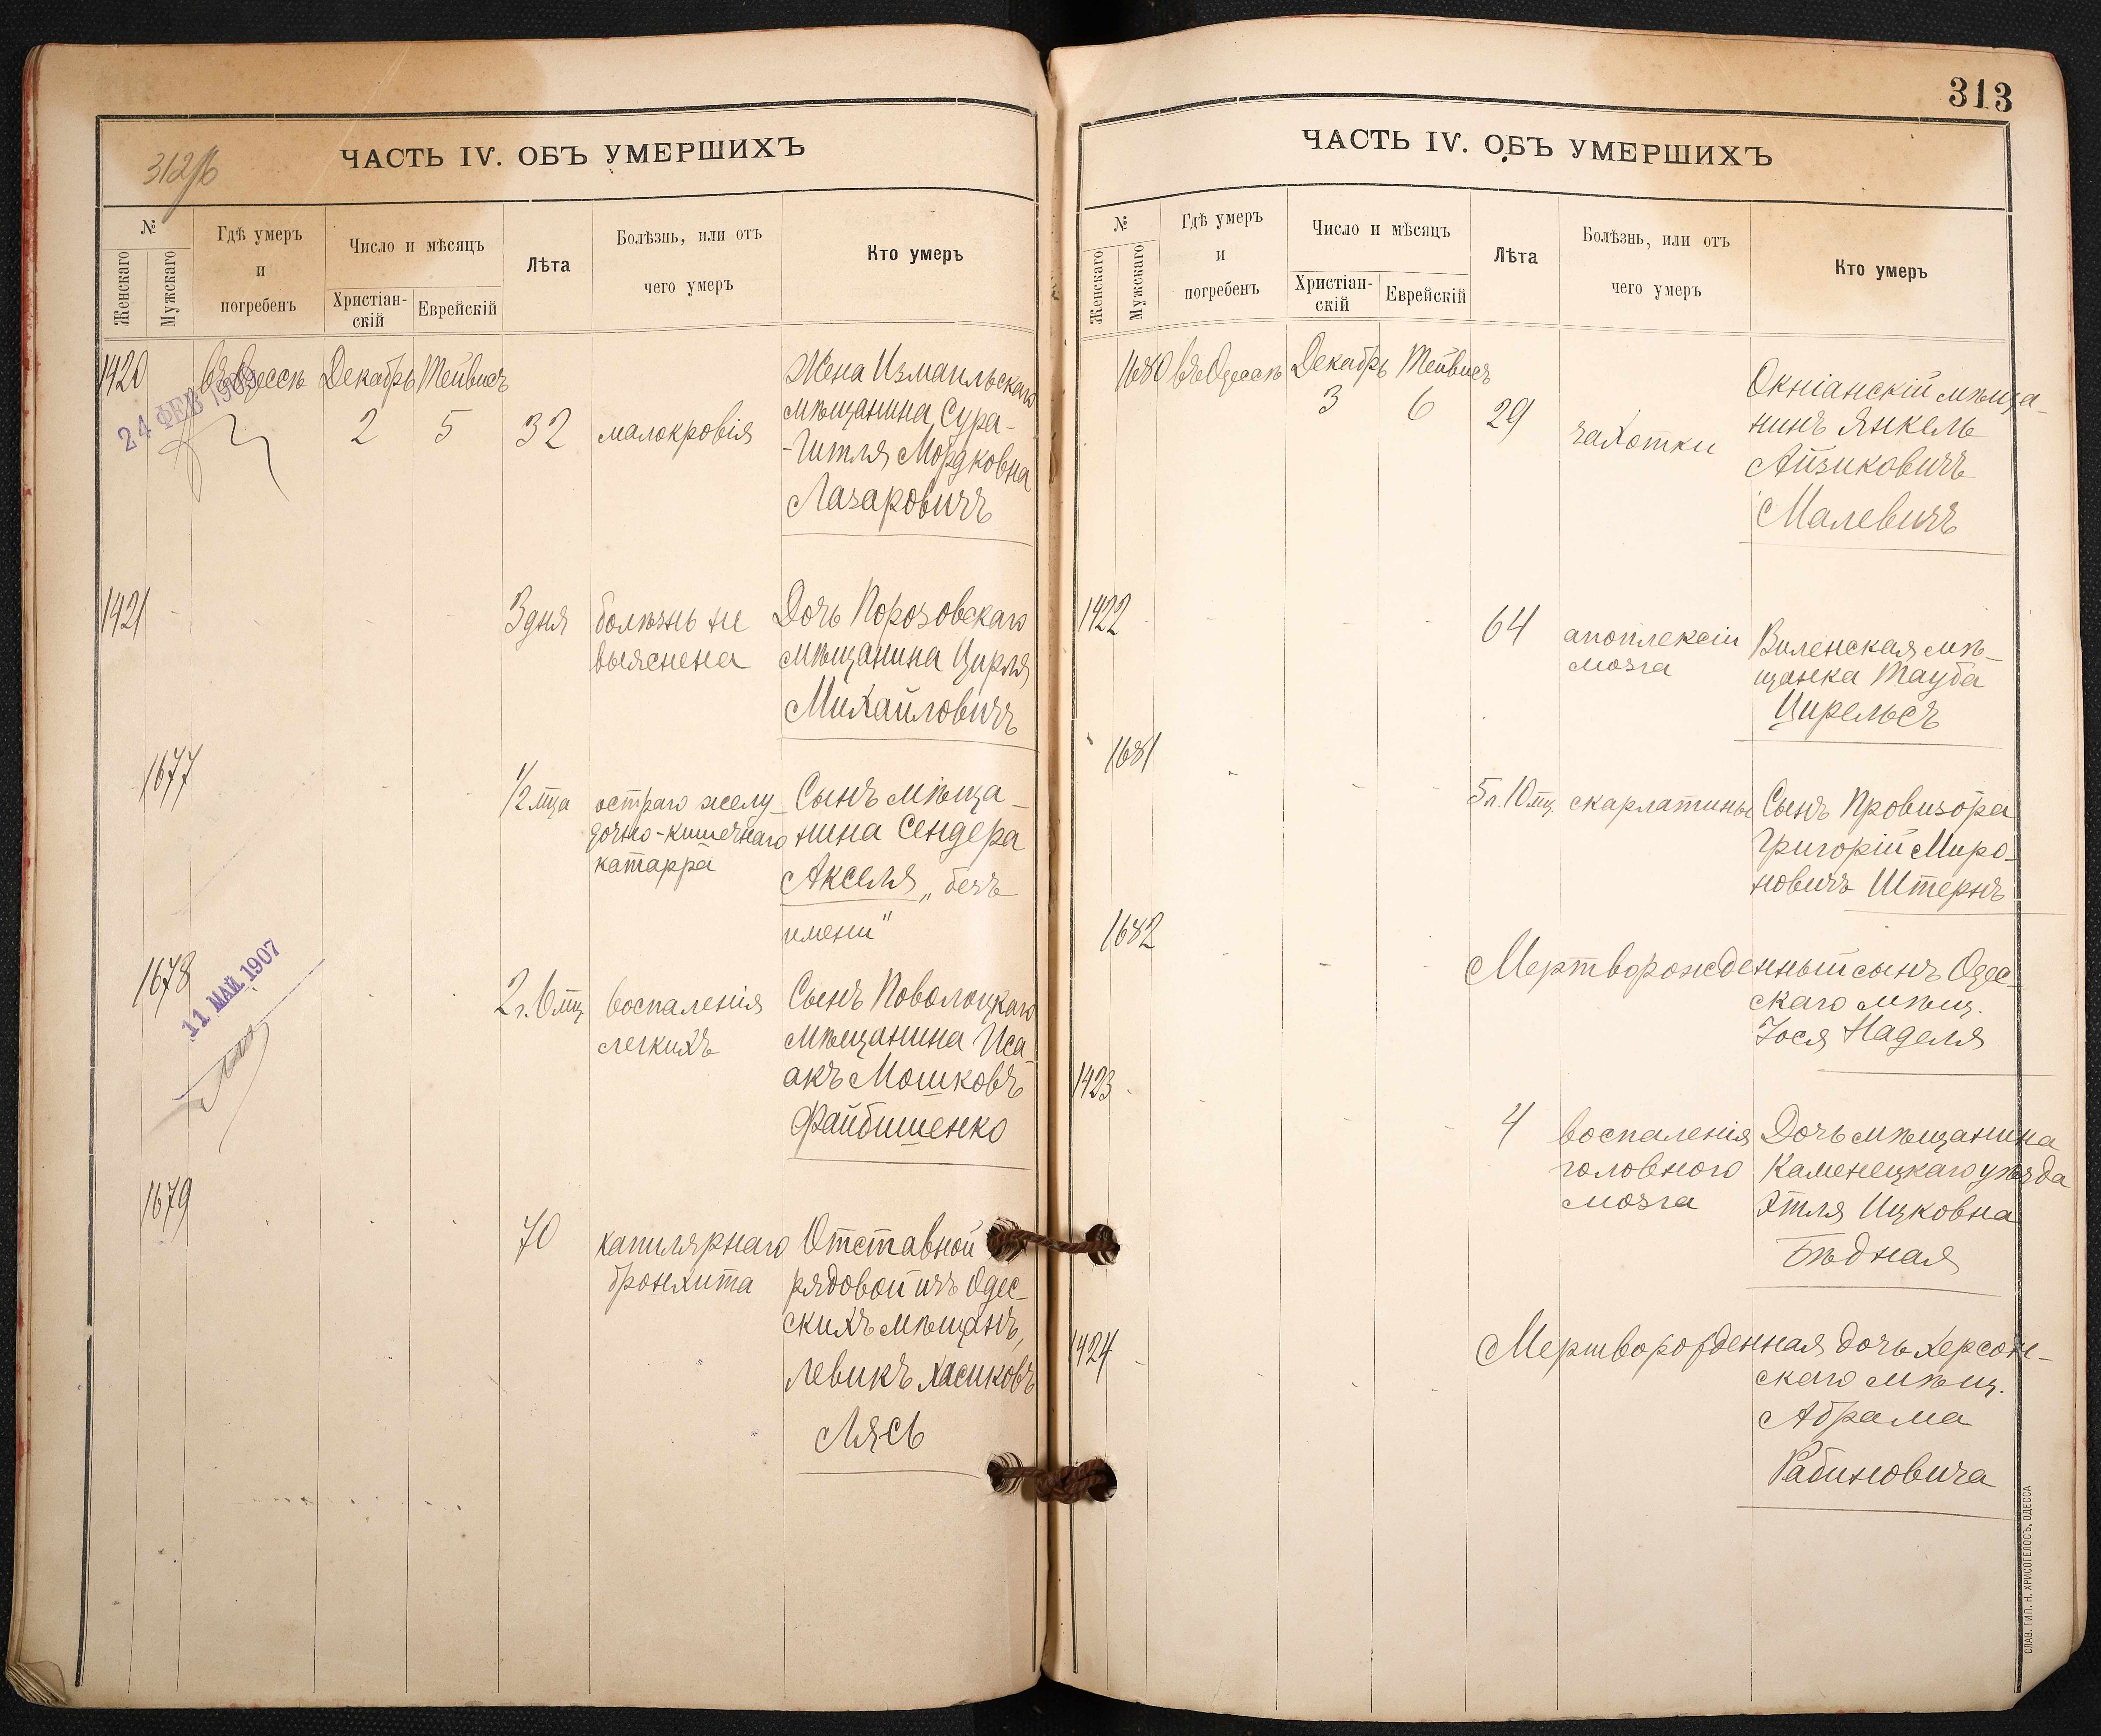 312/б
ЧАСТЬ IV. ОБЪ УМЕРШИХЪ
№
Женскаго
Мужскаго
Гдѣ умеръ
и
погребенъ
Число и мѣсяцъ
Христіан-
скій
Еврейскій
Лѣта
Болѣзнь, или отъ
чего умеръ
Кто умеръ
1420
въ Одессѣ
Декабрь
Тейвисъ
24 ФЕВ 1909
2
5
32
малокровія
Жена Измаильскаго
мѣщанина Сура-
-Гитля Мордковна
Лазаровичъ
1421
3 дня
болѣзнь не
выяснена
Дочь Порозовскаго
мѣщанина Цирля
Михайловичъ
1677
1/2 мца
остраго желу-
дочно-кишечнаго
катарра
Сынъ мѣща-
нина Сендера
Акселя „безъ
имени"
1678
11 МАЙ 1907
2 г. 6 мц
воспаленія
легкихъ
Сынъ Поволоцкаго
мѣщанина Иса-
акъ Мошковъ
Файбишенко
1679
70
капилярнаго
бронхита
Отставной
рядовой изъ Одес-
скихъ мѣщанъ,
Левикъ Хасиковъ
Лясъ
313
ЧАСТЬ IV. ОБЪ УМЕРШИХЪ
№
Женскаго
Мужскаго
Гдѣ умеръ
и
погребенъ
Число и мѣсяцъ
Христіан-
скій
Еврейскій
Лѣта
Болѣзнь, или отъ
чего умеръ
Кто умеръ
1680
въ Одессѣ
Декабрь
Тейвисъ
3
6
29
чахотки
Окніанскій мѣща-
нинъ Янкель
Айзиковичъ
Малевичъ
1422
64
апоплексіи
мозга
Виленская мѣ-
щанка Тауба
Цирельсъ
1681
5 л. 10 мц.
скарлатины
Сынъ Провизора
Григорій Миро-
новичъ Штернъ
1682
Мертворожденный сынъ Одес-
скаго мѣщ.
Іося Наделя
1423
4
воспаленія
головного
мозга
Дочь мѣщанина
Каменецкаго уѣзда
Этля Ицковна
Бѣдная
1424
Мертворожденная дочь Херсон-
скаго мѣщ.
Абрама
Рабиновича
СЛАВ. ТИП. Н. ХРИСОГЕЛОСЪ, ОДЕССА